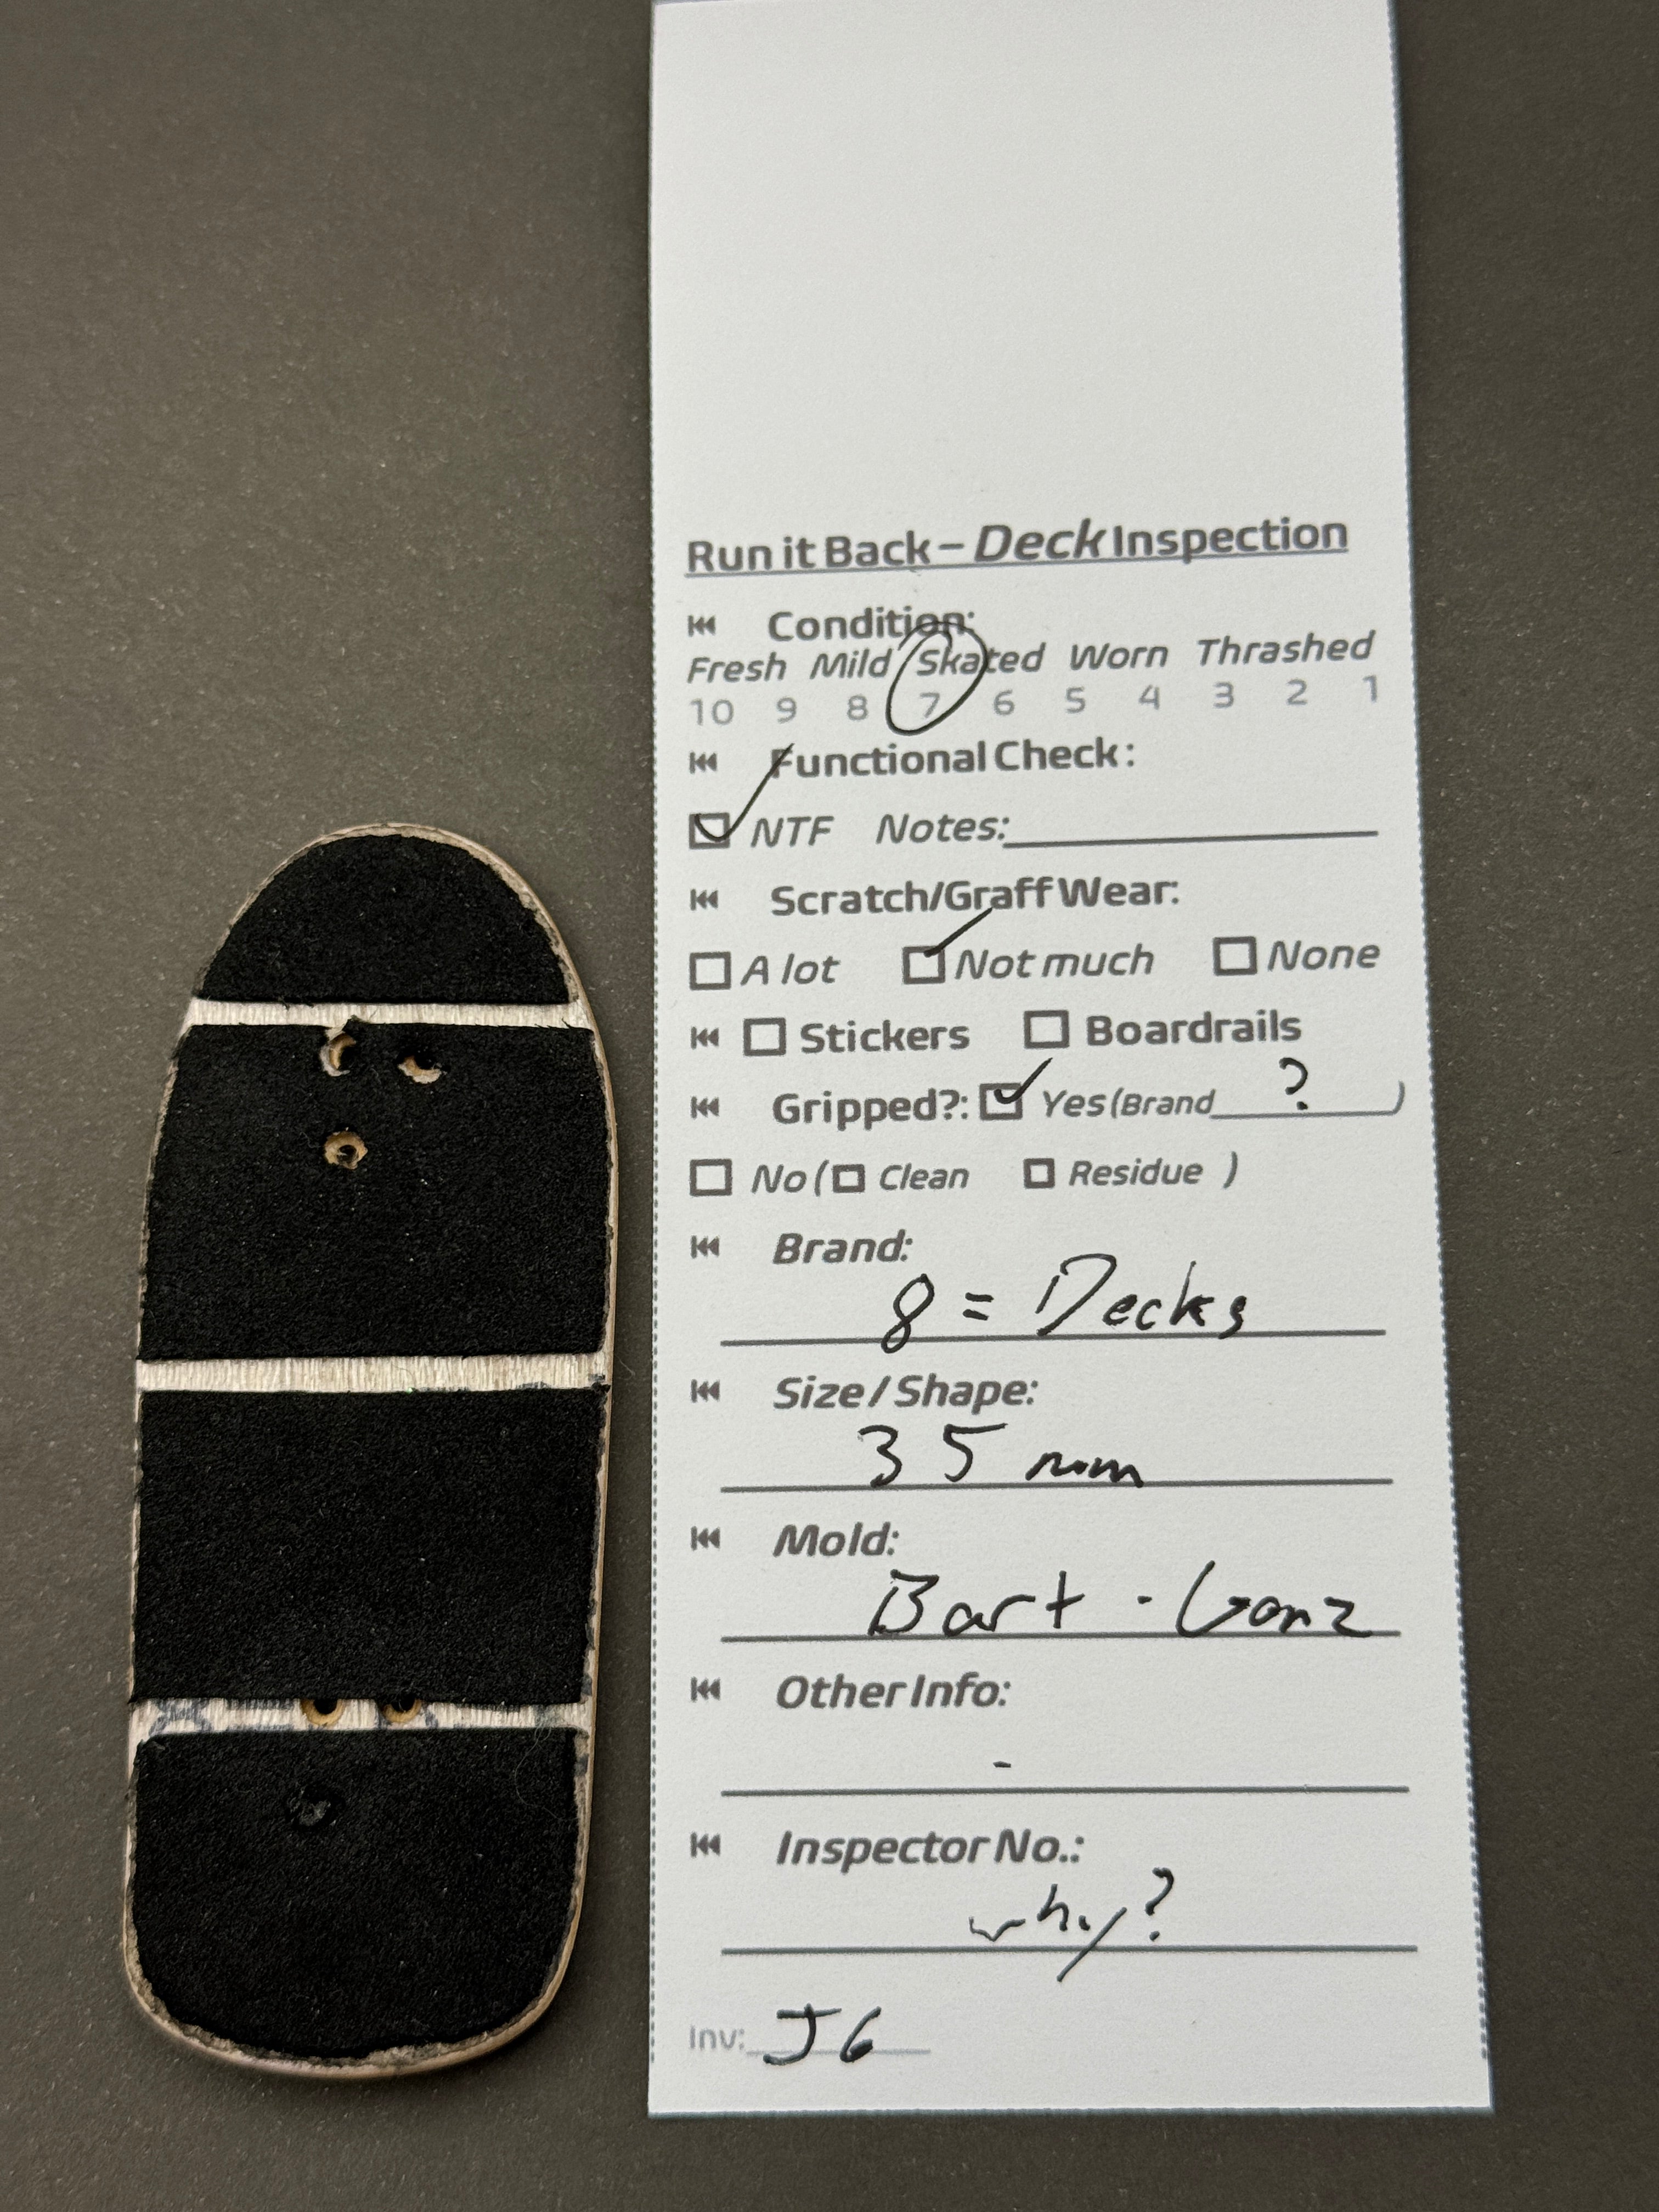 Run it Back – Deck Inspection
Condition:
Fresh Mild Skated Worn Thrashed
10 9 8 7 6 5 4 3 2 1
Functional Check:
NTF Notes:
Scratch/Graff Wear:
A lot Not much None
Stickers Boardrails
Gripped?: Yes (Brand ? )
No ( Clean Residue )
Brand:
8 = Decks
Size / Shape:
35 mm
Mold:
Bart - Gonz
Other Info:
-
Inspector No.:
why?
Inv: J6